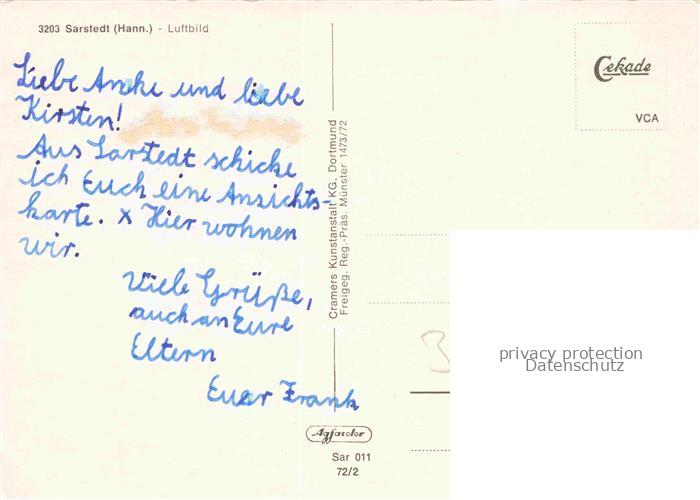 3203 Sarstedt (Hann.) - Luftbild
Liebe Anke und liebe
Kirsten!
Aus Sarstedt schicke
ich Euch eine Ansichts-
karte. x Hier wohnen
wir.
Viele Grüße,
auch an Eure
Eltern
Euer Frank
Cramers Kunstanstalt KG, Dortmund
Freigeg. Reg.-Präs. Münster 1473/72
Cekade
VCA
3
privacy protection
Datenschutz
Agfacolor
Sar 011
72/2